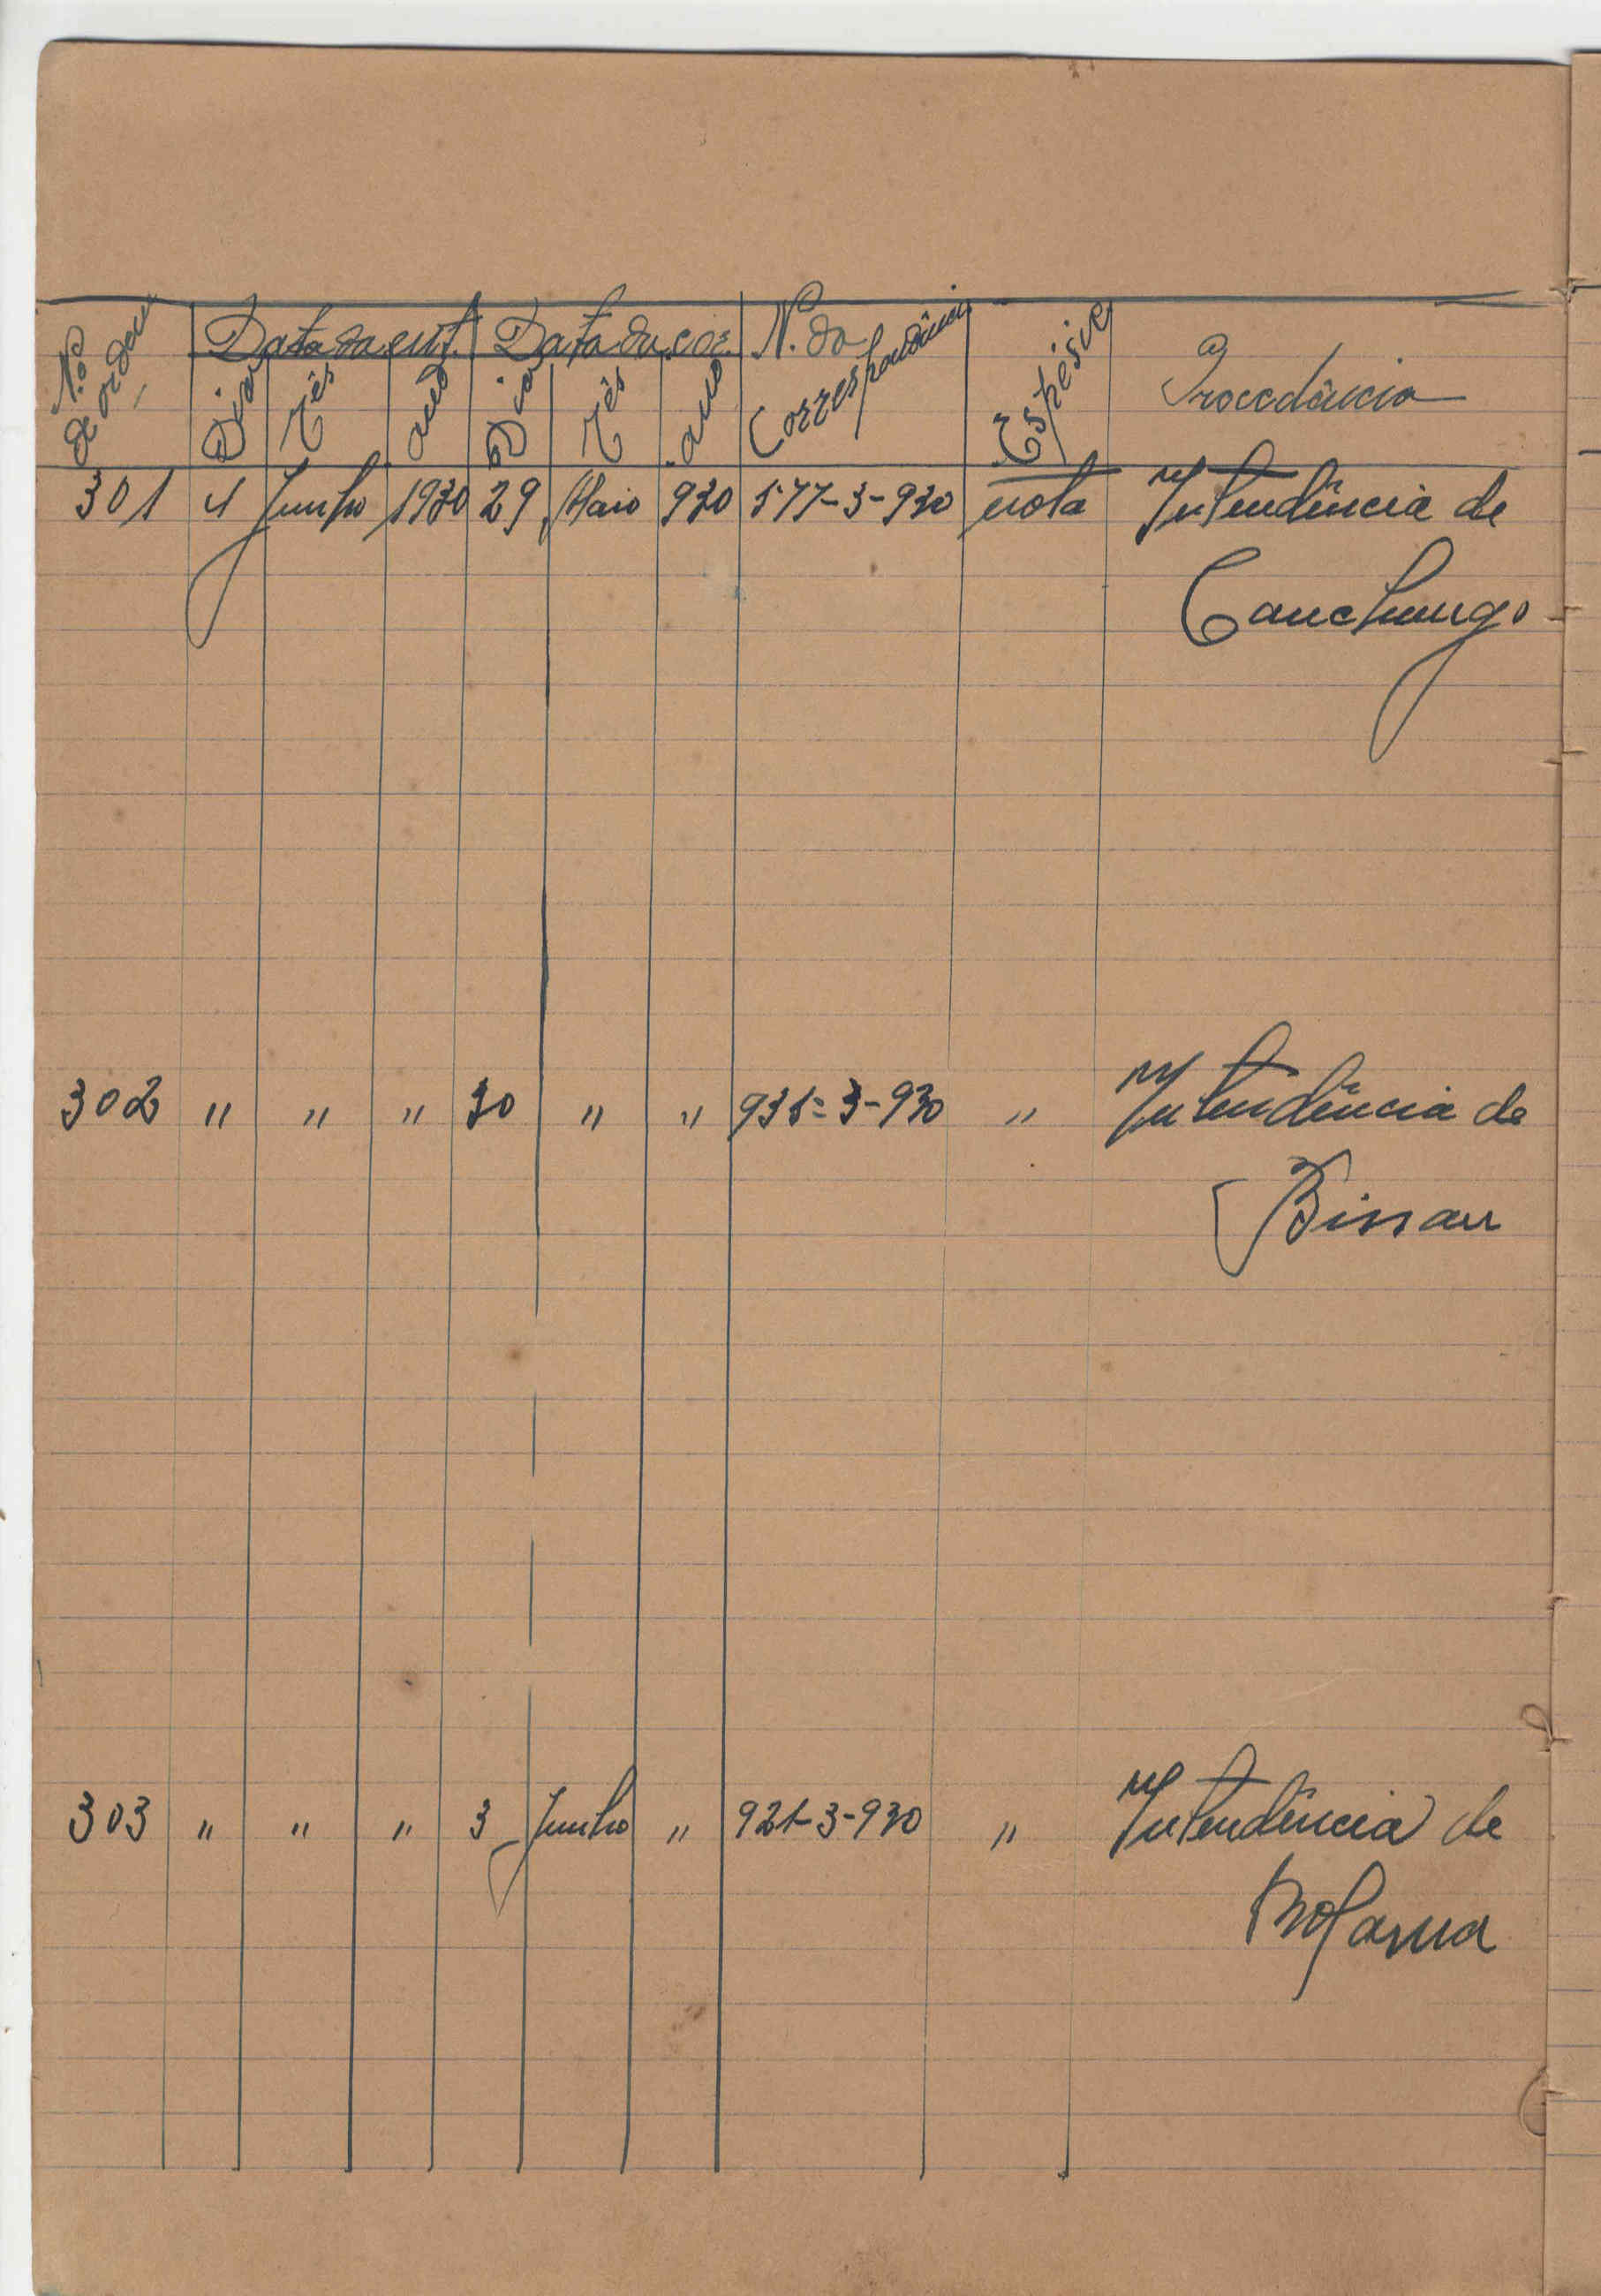 N.º de ordem Data da ent. Data da cor. N. da Correspondência Espésie Procedência
Dia Mês ano Dia Mês ano
301 4 Junho 1930 29 Maio 930 577-3-930 nota Intendência de
Canchungo
302 " " " 30 " " 931=3-930 " Intendência de
Bissau
303 " " " 3 Junho " 921-3-930 " Intendência de
Bolama